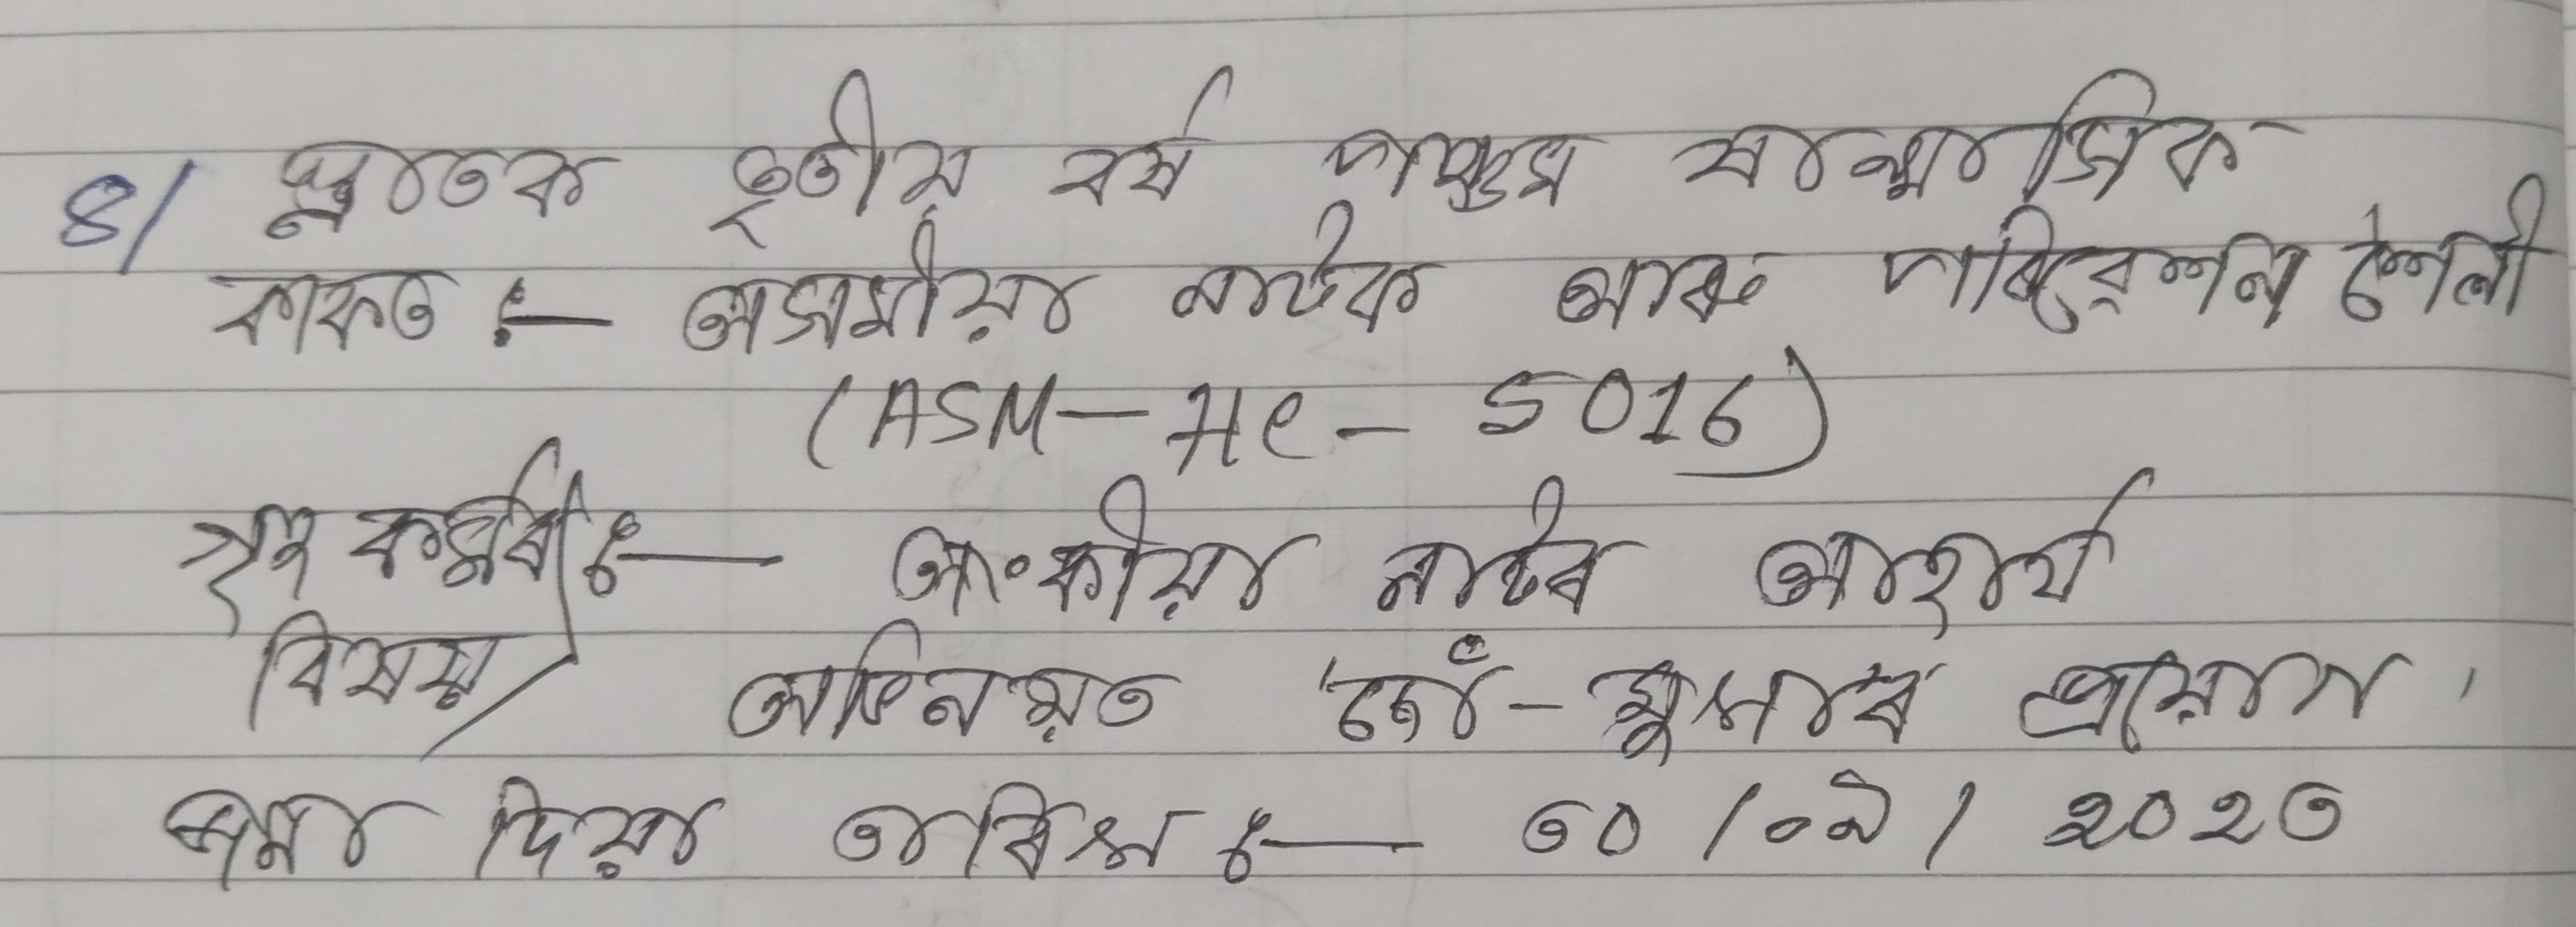 ৪/ স্নাতক তৃতীয় বৰ্ষ পঞ্চম ষান্মাসিক
কাকত :— অসমীয়া নাটক আৰু পৰিৱেশন শৈলী
(ASM-HC-5016)
গৃহ কৰ্মৰ :— অংকীয়া নাটৰ আহাৰ্য
বিষয় অভিনয়ত 'চোঁ-মুখাৰ প্ৰয়োগ'
জমা দিয়া তাৰিখ :— ৩০ /০৯ / ২০২৩